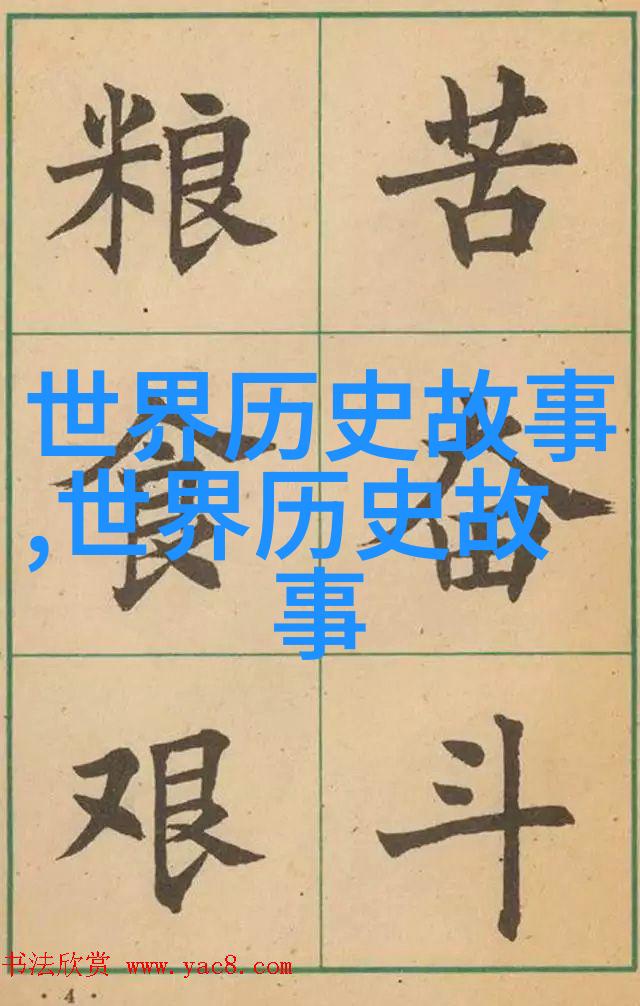 粮 苦
世界历史故事
,世界历史故
事
食 奋
艰 斗
书法欣赏 www.yac8.com
· 4 ·